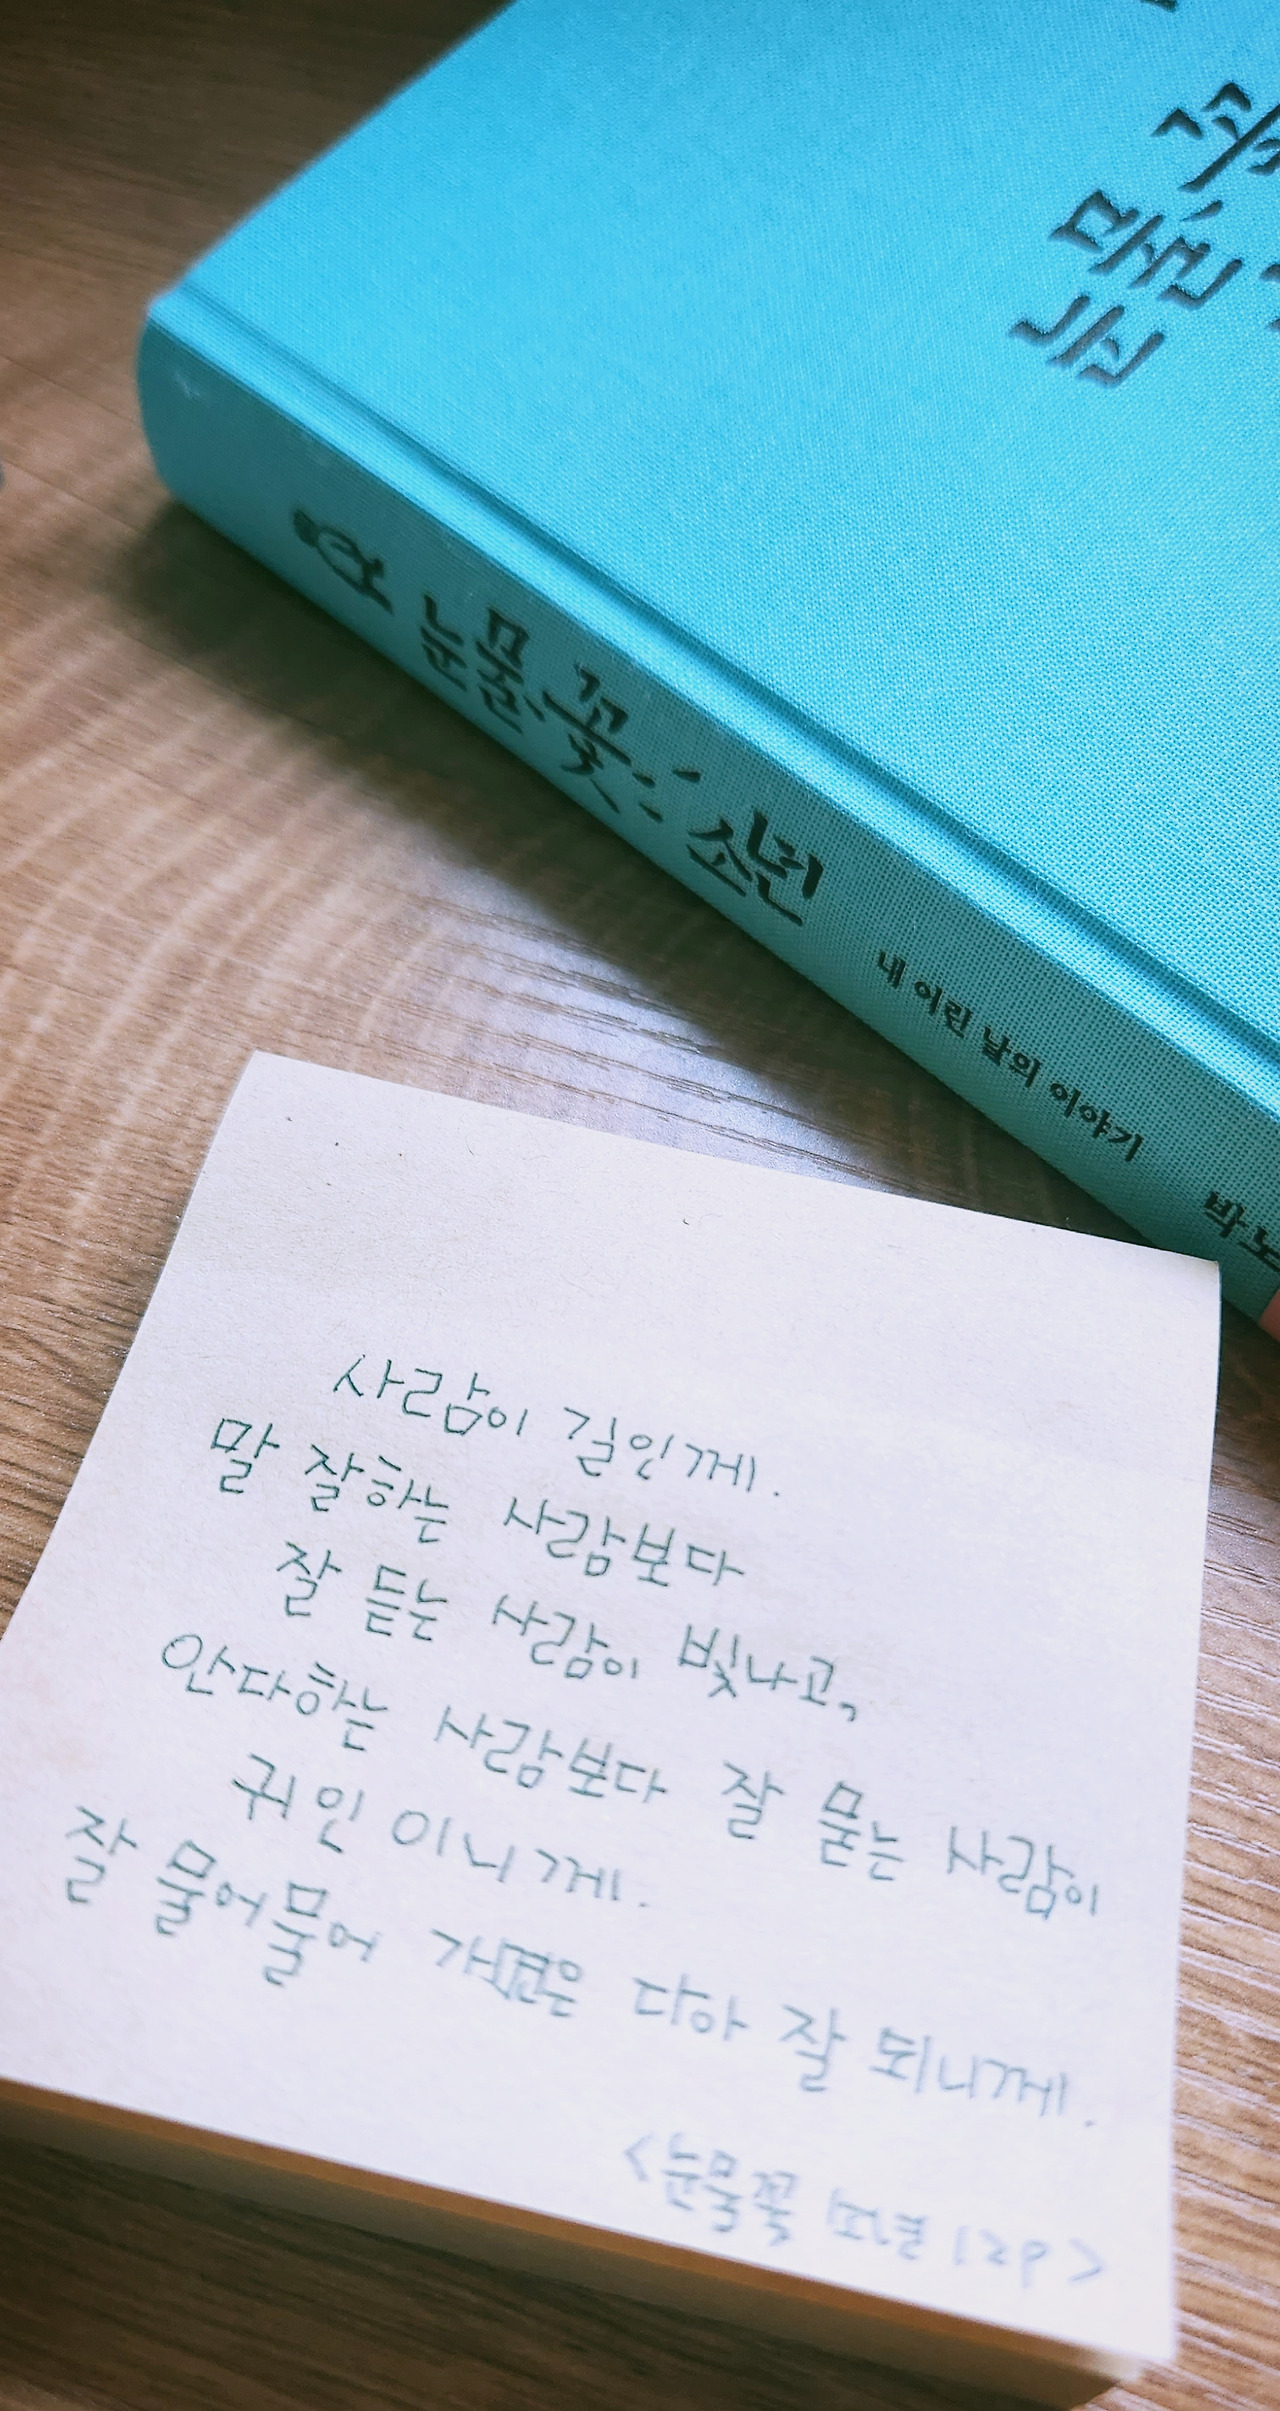 꽃
눈물
눈물꽃 소년
내 어린 날의 이야기
박노
사람이 길인께.
말 잘하는 사람보다
잘 듣는 사람이 빛나고,
안다하는 사람보다 잘 묻는 사람이
귀인 이니께.
잘 물어물어 가면은 다아 잘 되니께.
<눈물꽃 소년 12p>